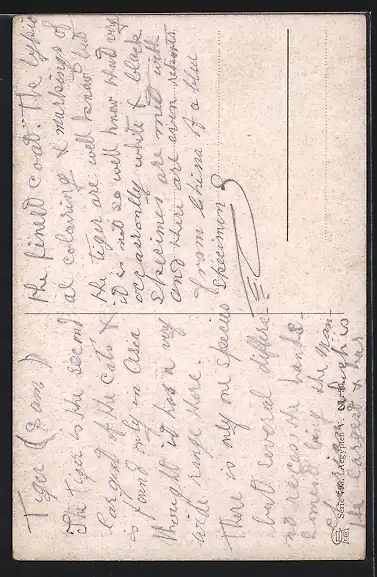 Tiger (Jam)
The tiger is the second
largest of the cats &
is found only in Asia
thought it has a very
wide range there.
there is only one species
but several differe-
nt races the hands-
omest being the Man-
churian which is
the largest & has
the finest coat. The typic
al colouring & markings of
the tiger are well known but
it is not so well known that very
occasionally white & black
specimens are met with
and there are even reports
from China of a blue
specimen
Serie 560, Aegypten